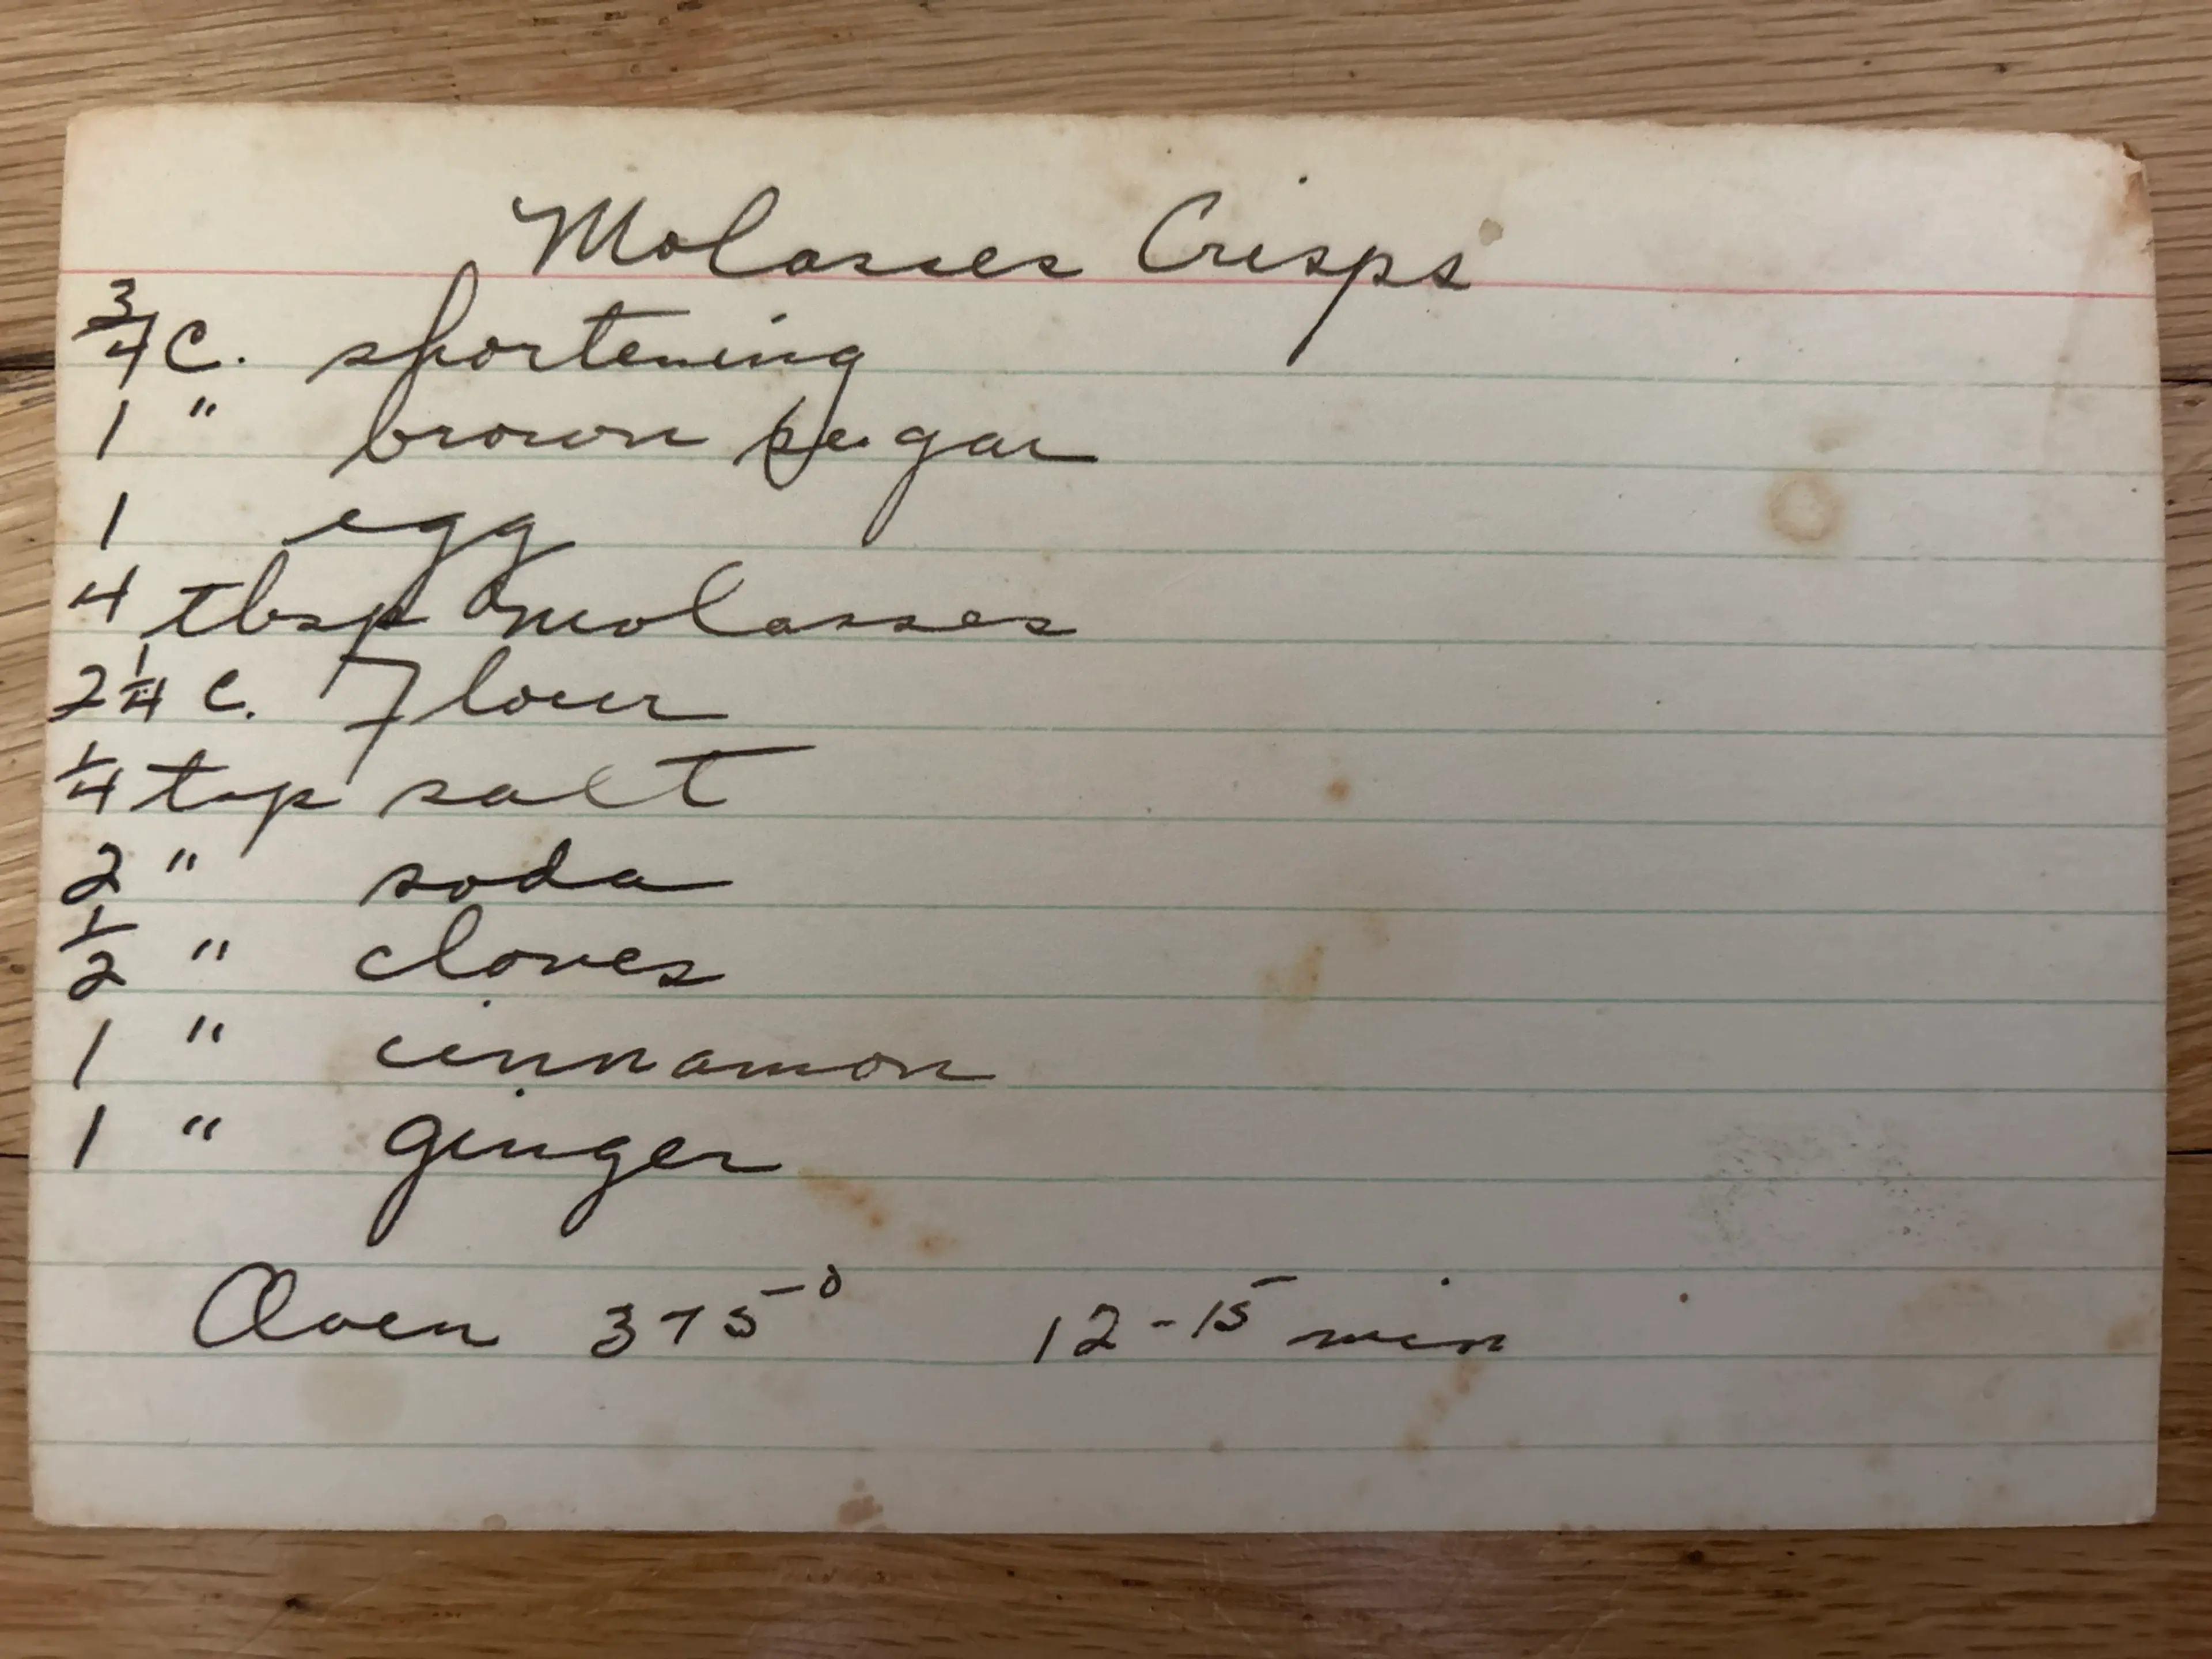 Molasses Crisps
3/4 C. shortening
1 " brown sugar
1 egg
4 tbsp molasses
2 1/4 C. Flour
1/4 tsp salt
2 " soda
1/2 " cloves
1 " cinnamon
1 " ginger
Oven 375° 12-15 min